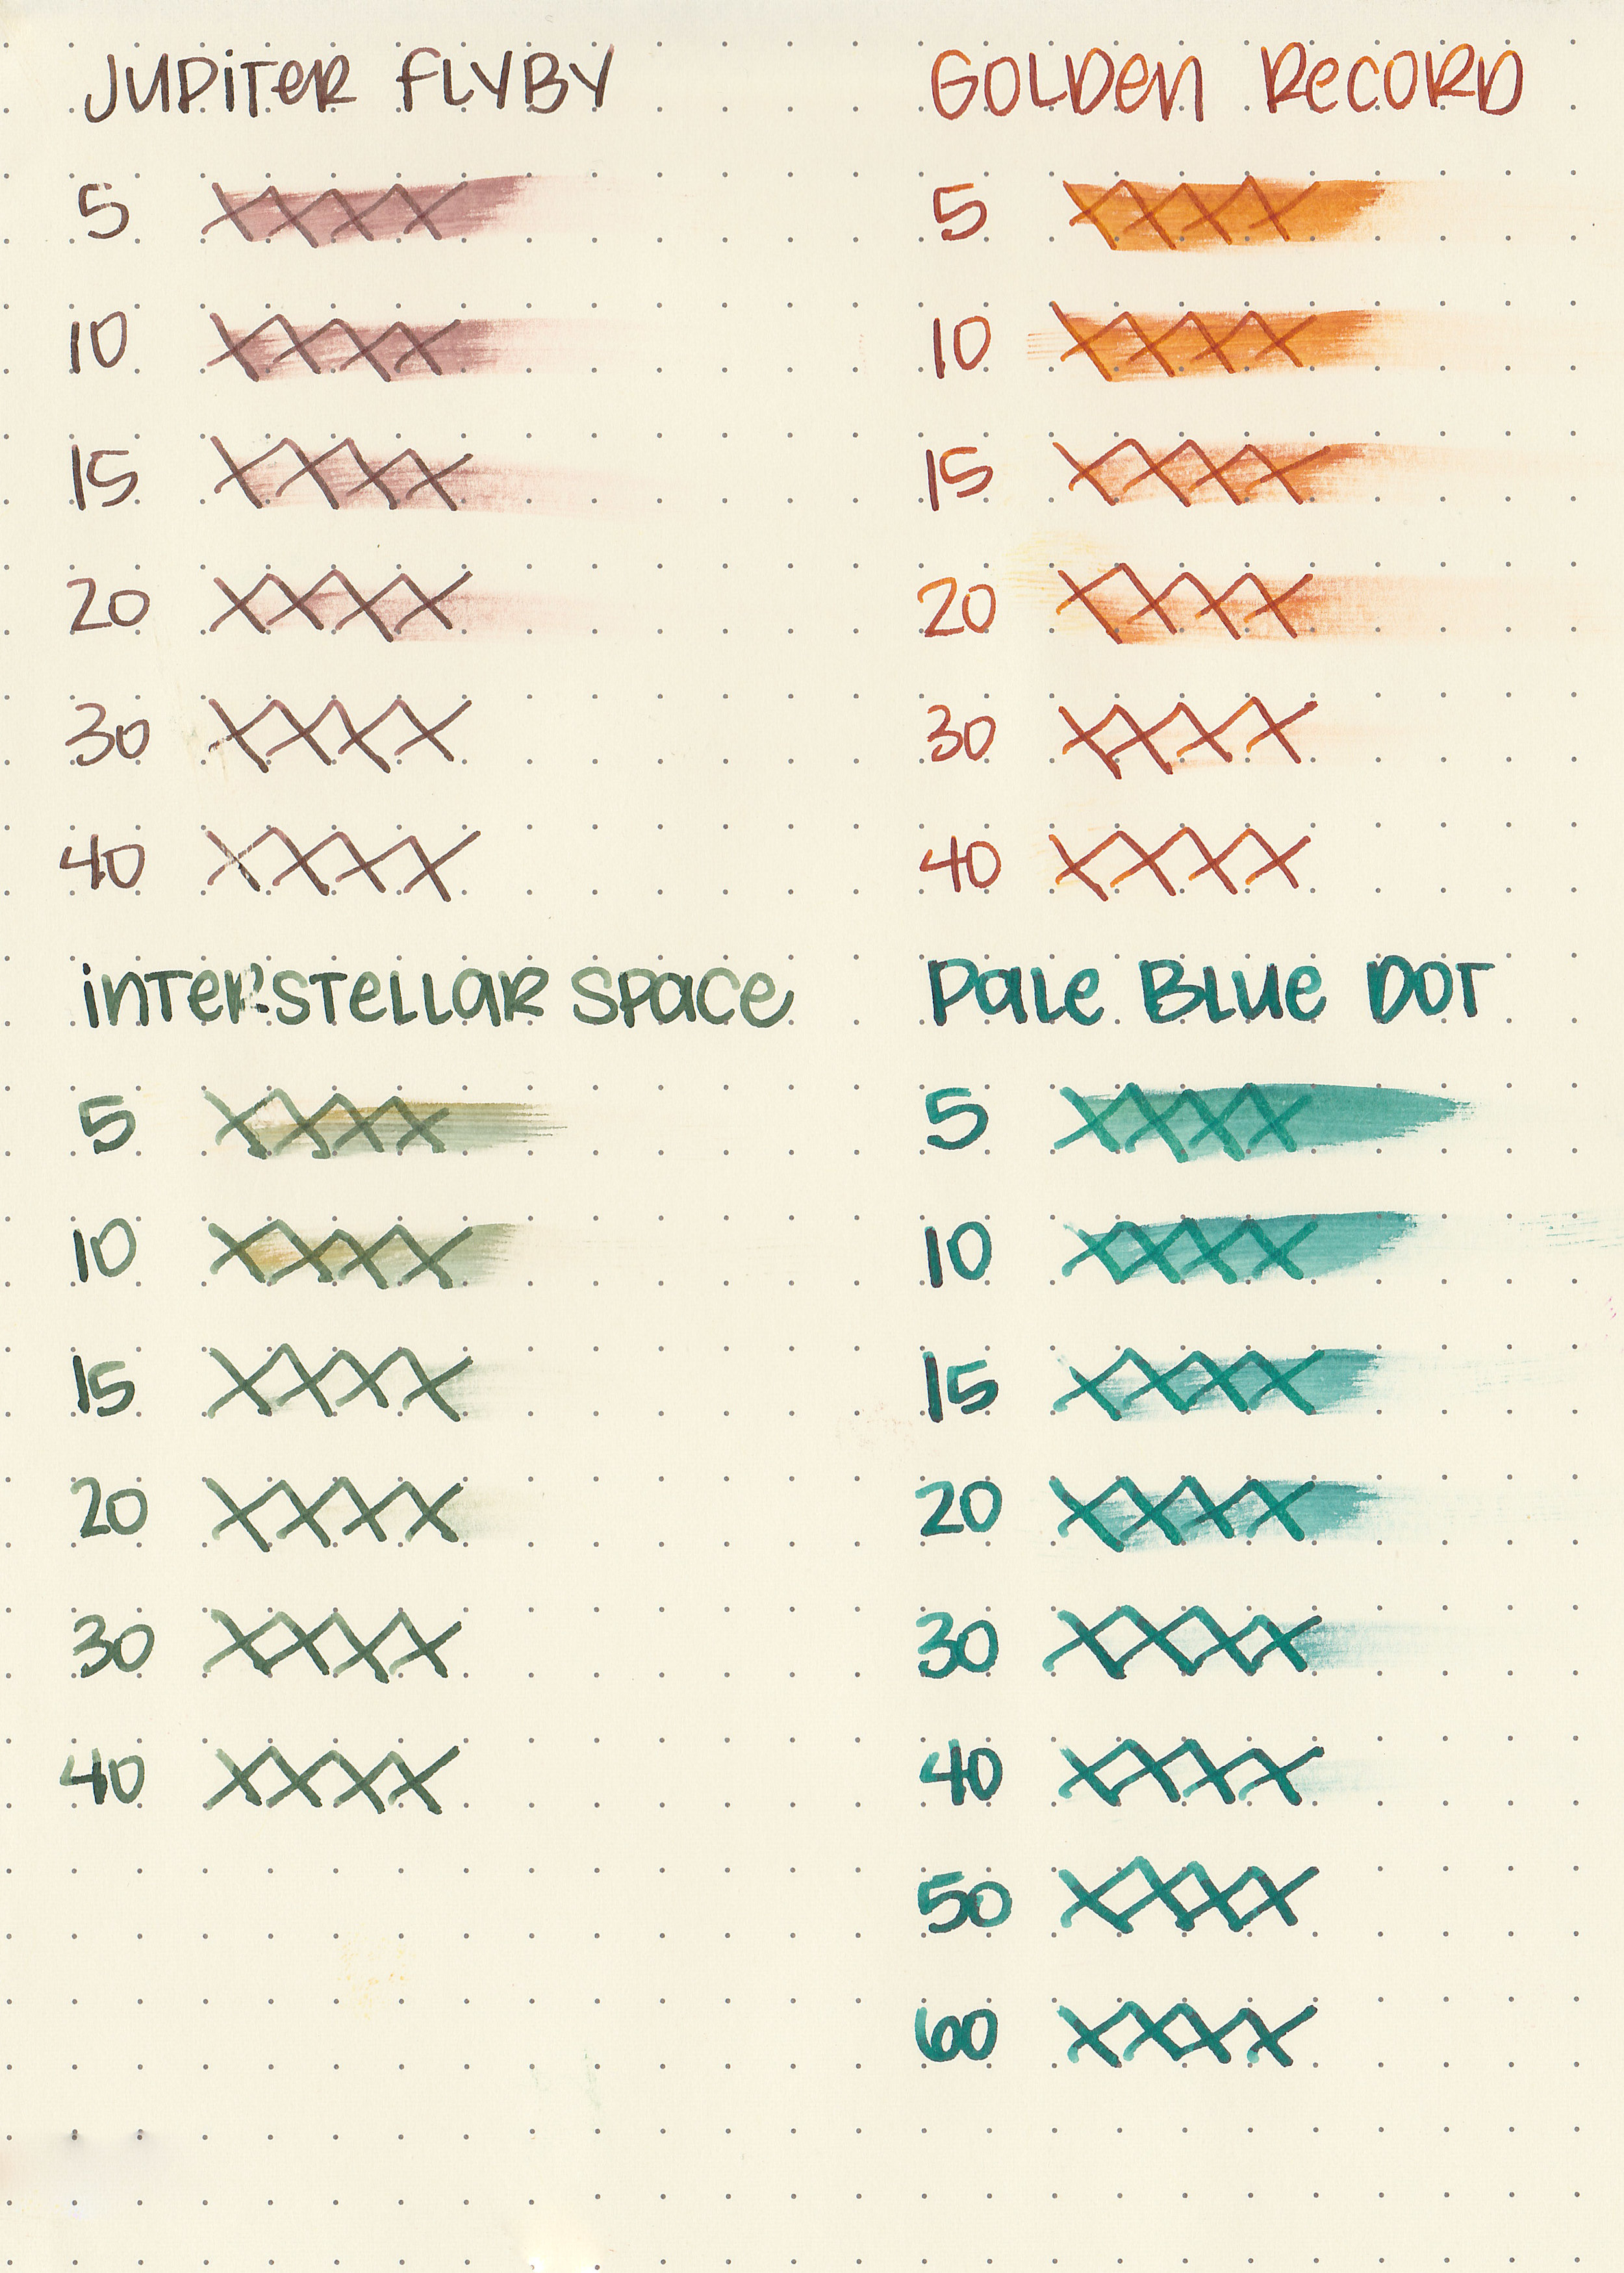 Jupiter Flyby
5 XXXX
10 XXXX
15 XXXX
20 XXXX
30 XXXX
40 XXXX
Golden Record
5 XXXX
10 XXXX
15 XXXX
20 XXXX
30 XXXX
40 XXXX
Interstellar Space
5 XXXX
10 XXXX
15 XXXX
20 XXXX
30 XXXX
40 XXXX
Pale Blue Dot
5 XXXX
10 XXXX
15 XXXX
20 XXXX
30 XXXX
40 XXXX
50 XXXX
60 XXXX